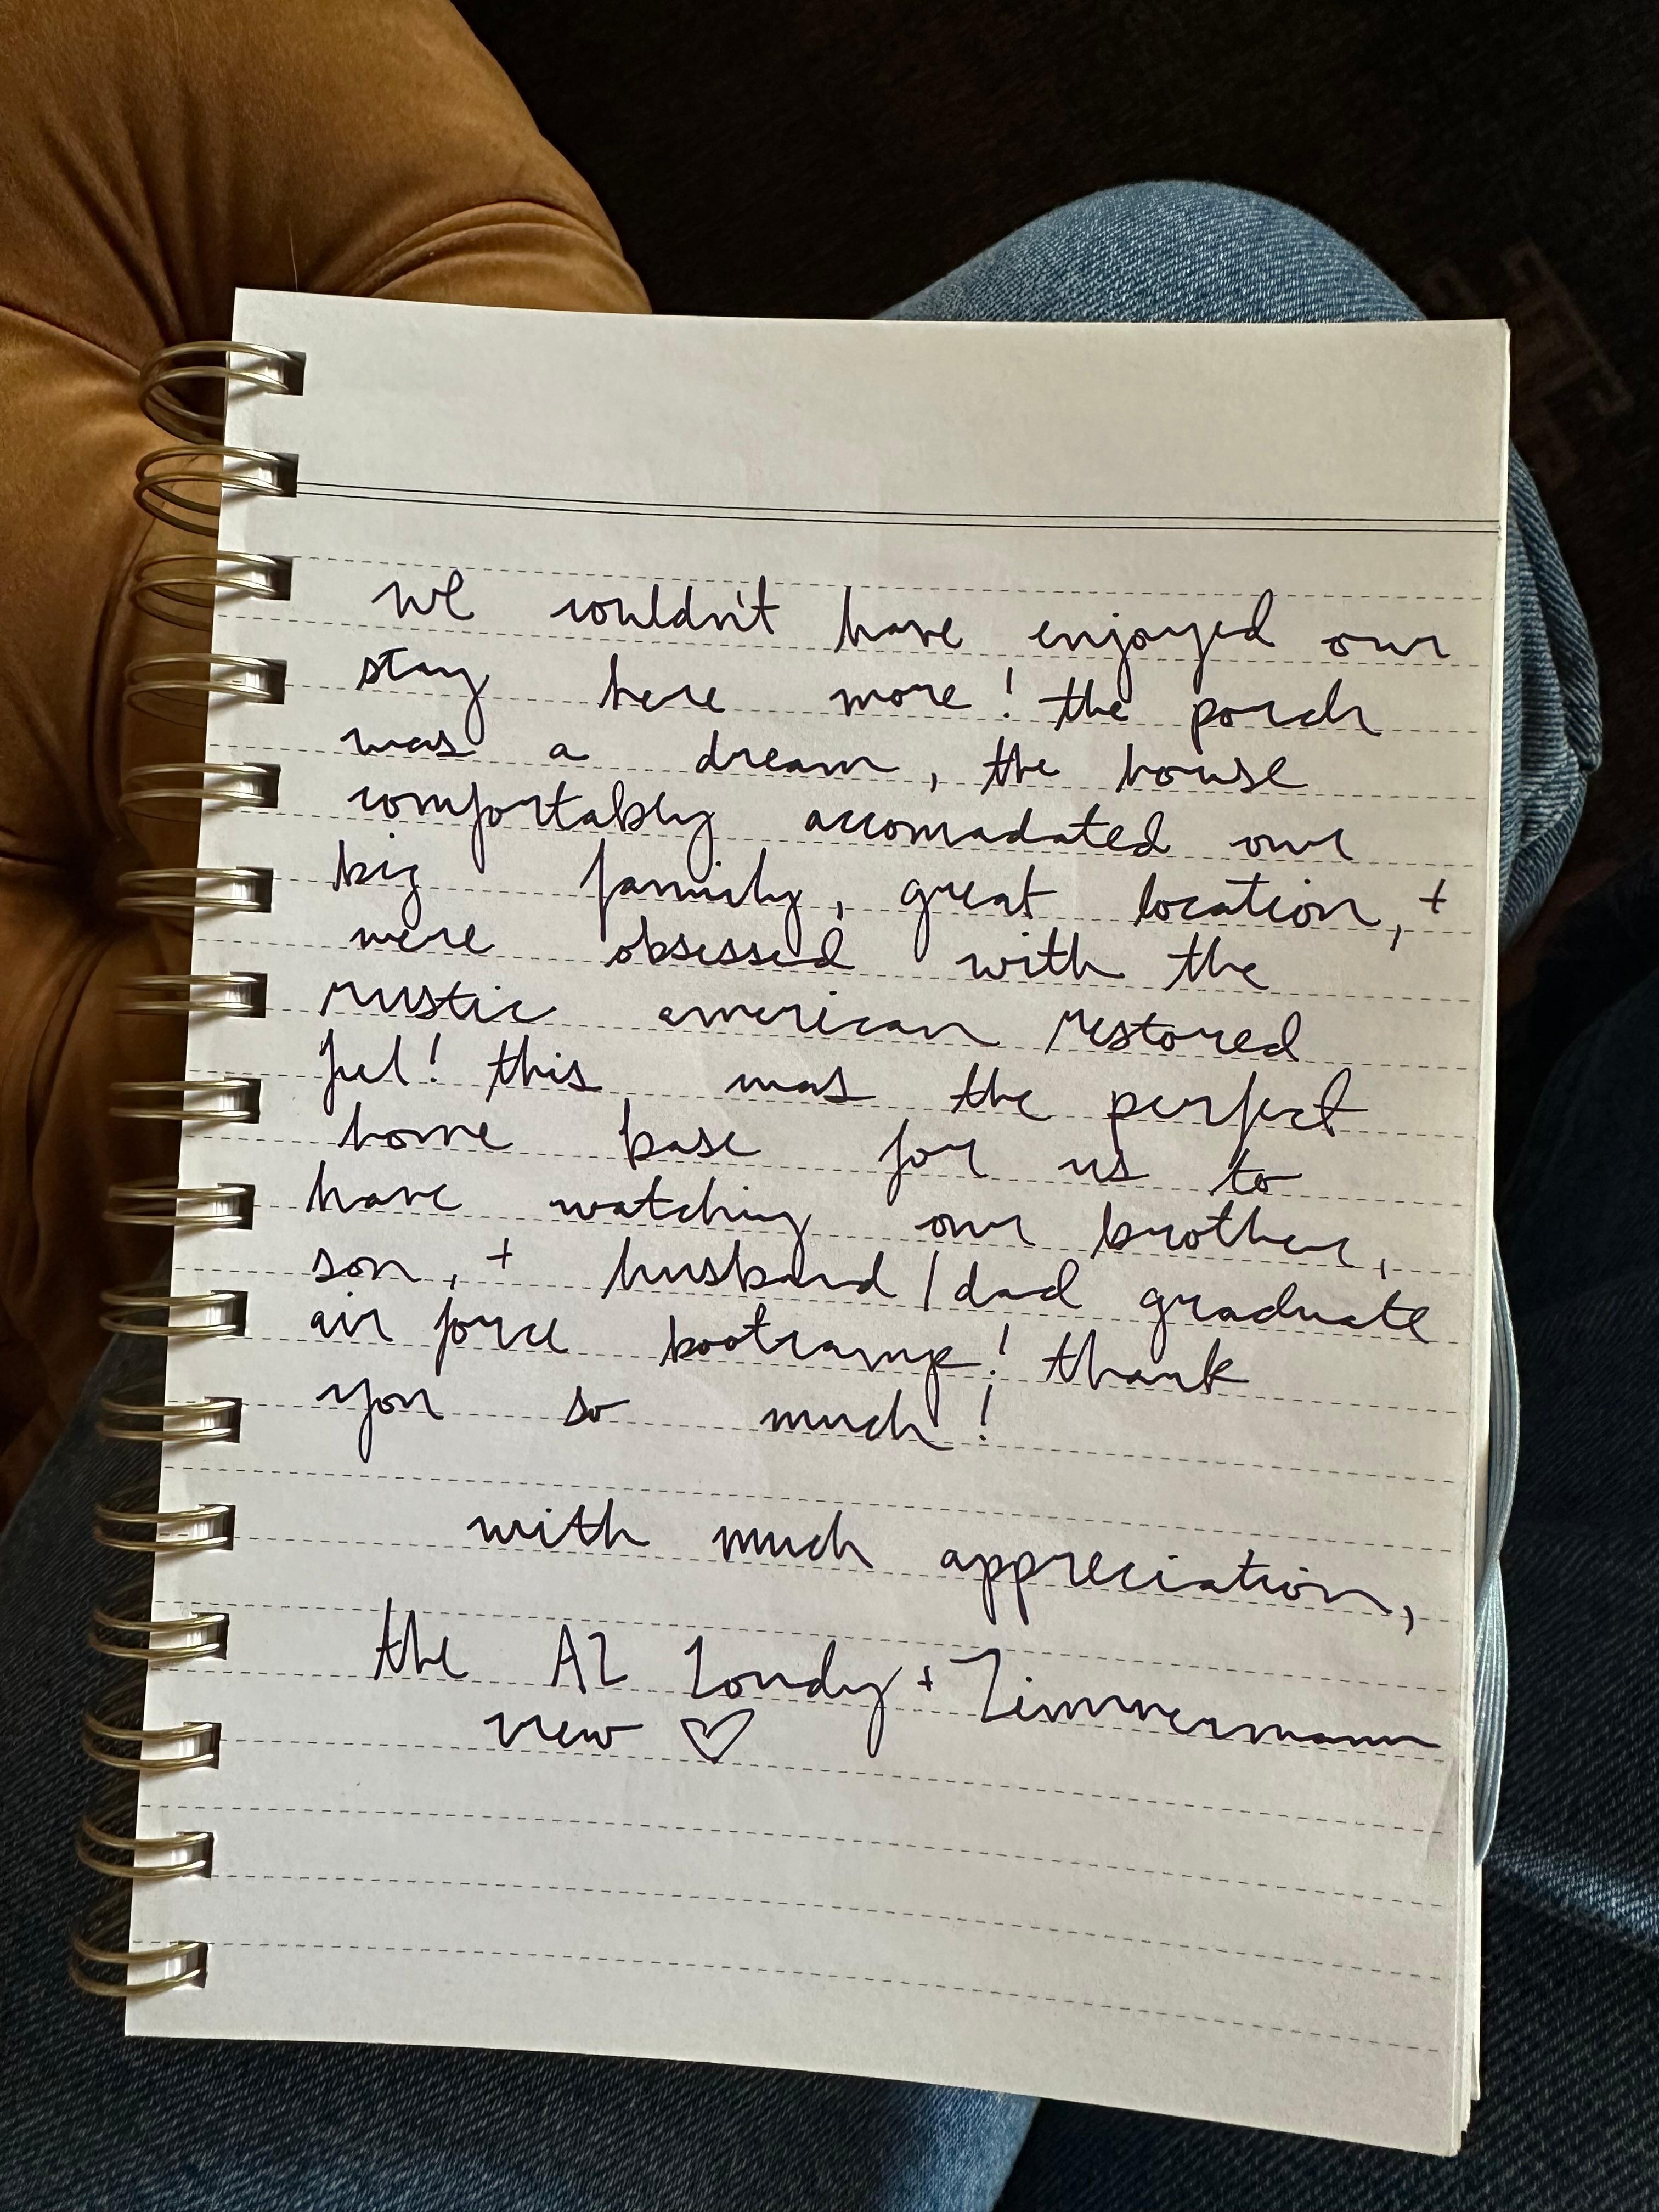 we couldn't have enjoyed our
stay here more! the porch
was a dream, the house
comfortably accomadated our
big family, great location, +
were obsessed with the
rustic american restored
feel! this was the perfect
home base for us to
have watching our brother,
son, + husband/dad graduate
air force bootcamp! thank
you so much!
with much appreciation,
the AZ + Zimmermann
crew ♡